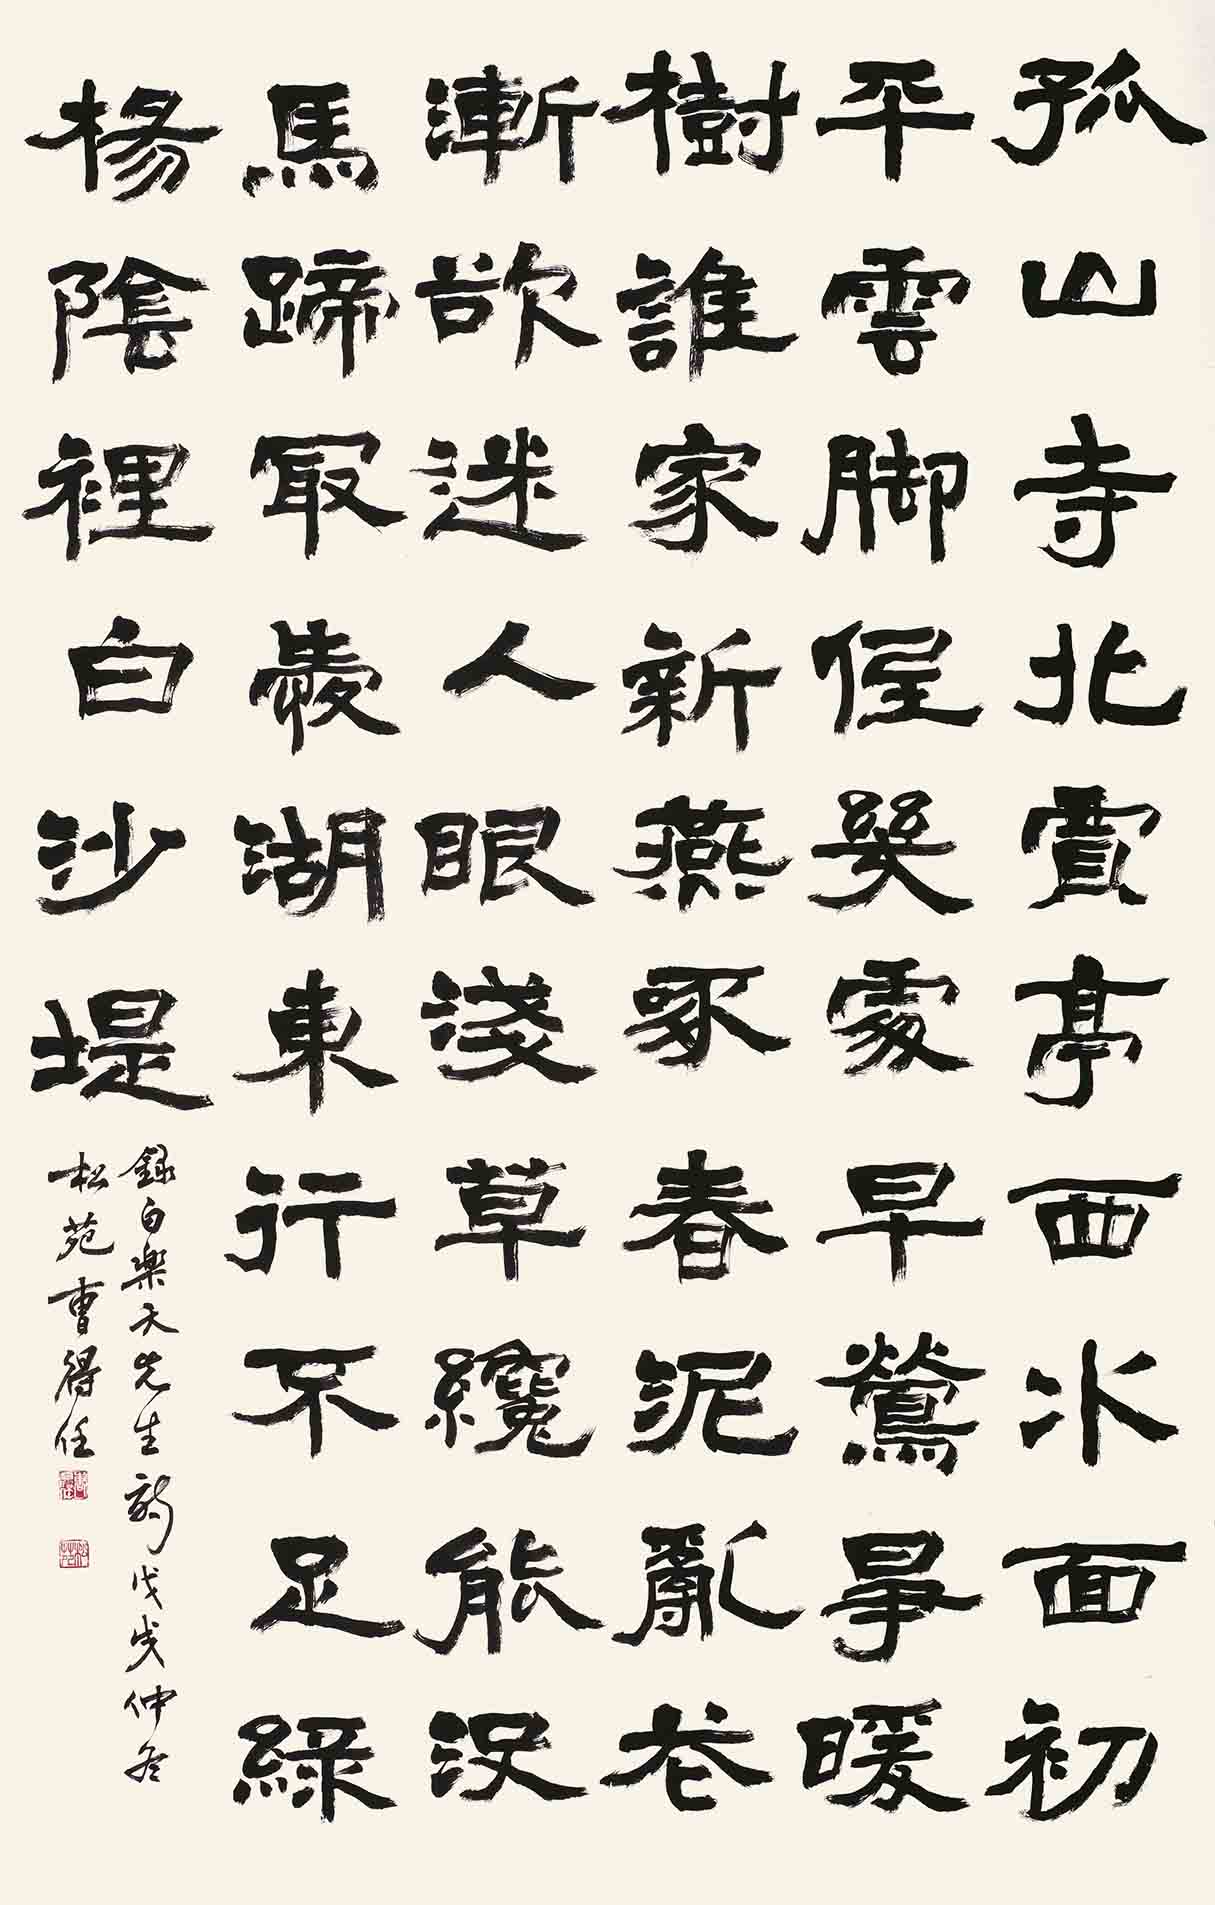 孤山寺北賈亭西水面初
平雲脚低幾處早鶯爭暖
樹誰家新燕啄春泥亂花
漸欲迷人眼淺草纔能沒
馬蹄最愛湖東行不足綠
楊陰裡白沙堤
錄白樂天先生詩戊戌仲冬
松苑曹得任